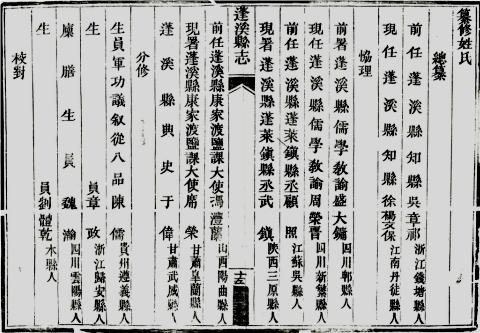 纂修姓氏
總纂
前任蓬溪縣知縣吳章祁浙江錢塘縣人
現任蓬溪縣知縣徐楊文保江南丹徒縣人
協理
前署蓬溪縣儒學教諭盛大鏞四川郫縣人
現任蓬溪縣儒學教諭周榮晋四川新繁縣人
前任蓬溪縣蓬萊鎮縣丞顧照江蘇吳縣人
現署蓬溪縣蓬萊鎮縣丞武鎮陝西三原縣人
蓬溪縣志
前任蓬溪縣康家渡鹽課大使馮灃蘭山西陽曲縣人
現署蓬溪縣康家渡鹽課大使席榮甘肅皐蘭縣人
蓬溪縣典史于偉甘肅武威縣人
分修
生員軍功議叙從八品陳儒貴州遵義縣人
生員章政浙江歸安縣人
廩膳生員魏瀚四川雲陽縣人
生員劉體乾本縣人
校對